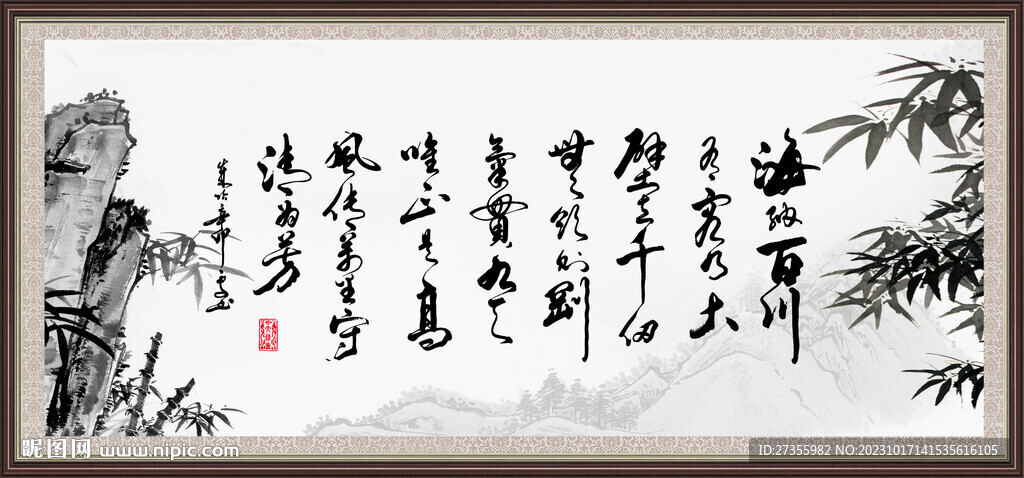 海纳百川
有容乃大
壁立千仞
無欲则剛
氣貫九天
唯正是高
風传萬里守
清为芳
昵图网 www.nipic.com
ID:27355982 NO:20231017141535616105